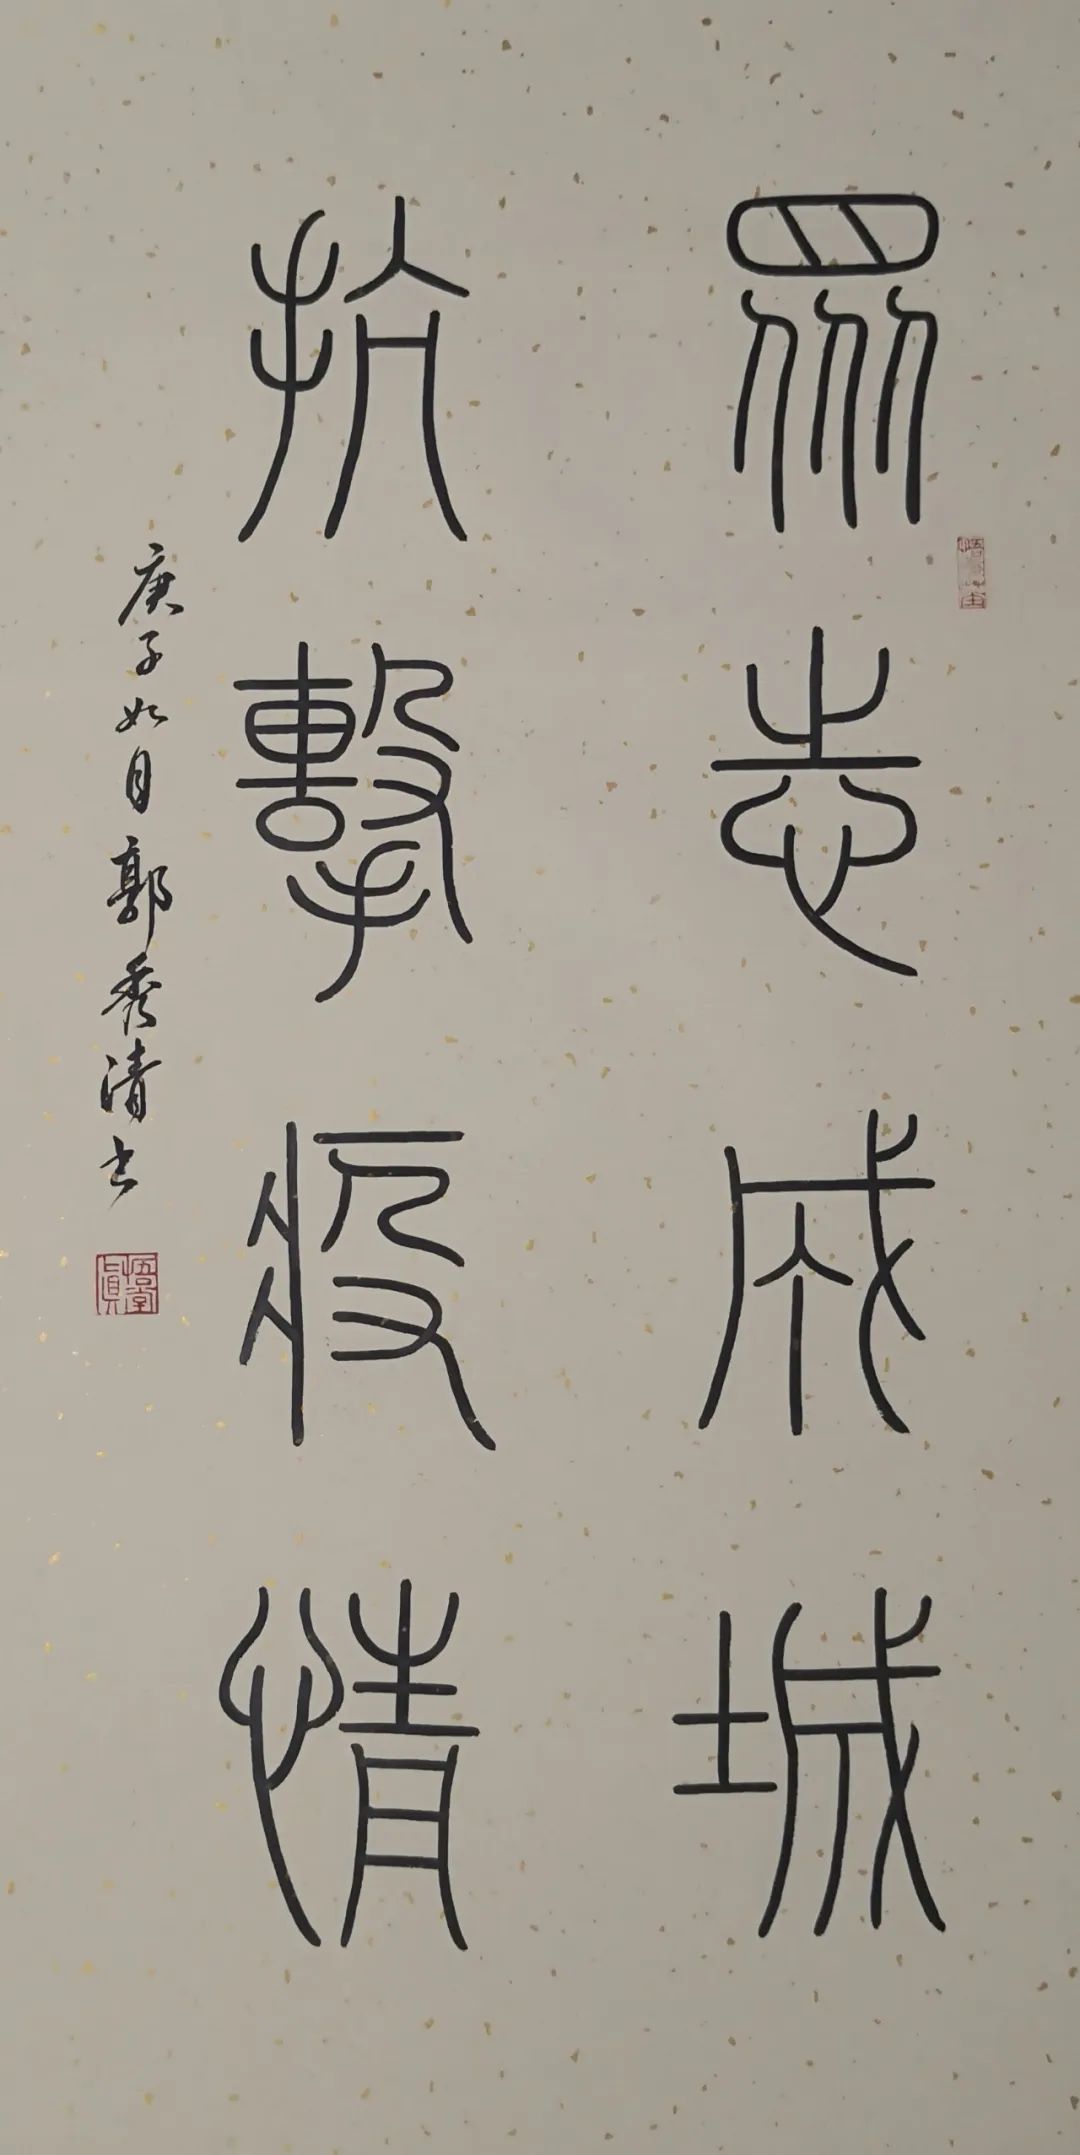 眾志成城
抗擊疫情
庚子如月郭秀清書
悟堂
真